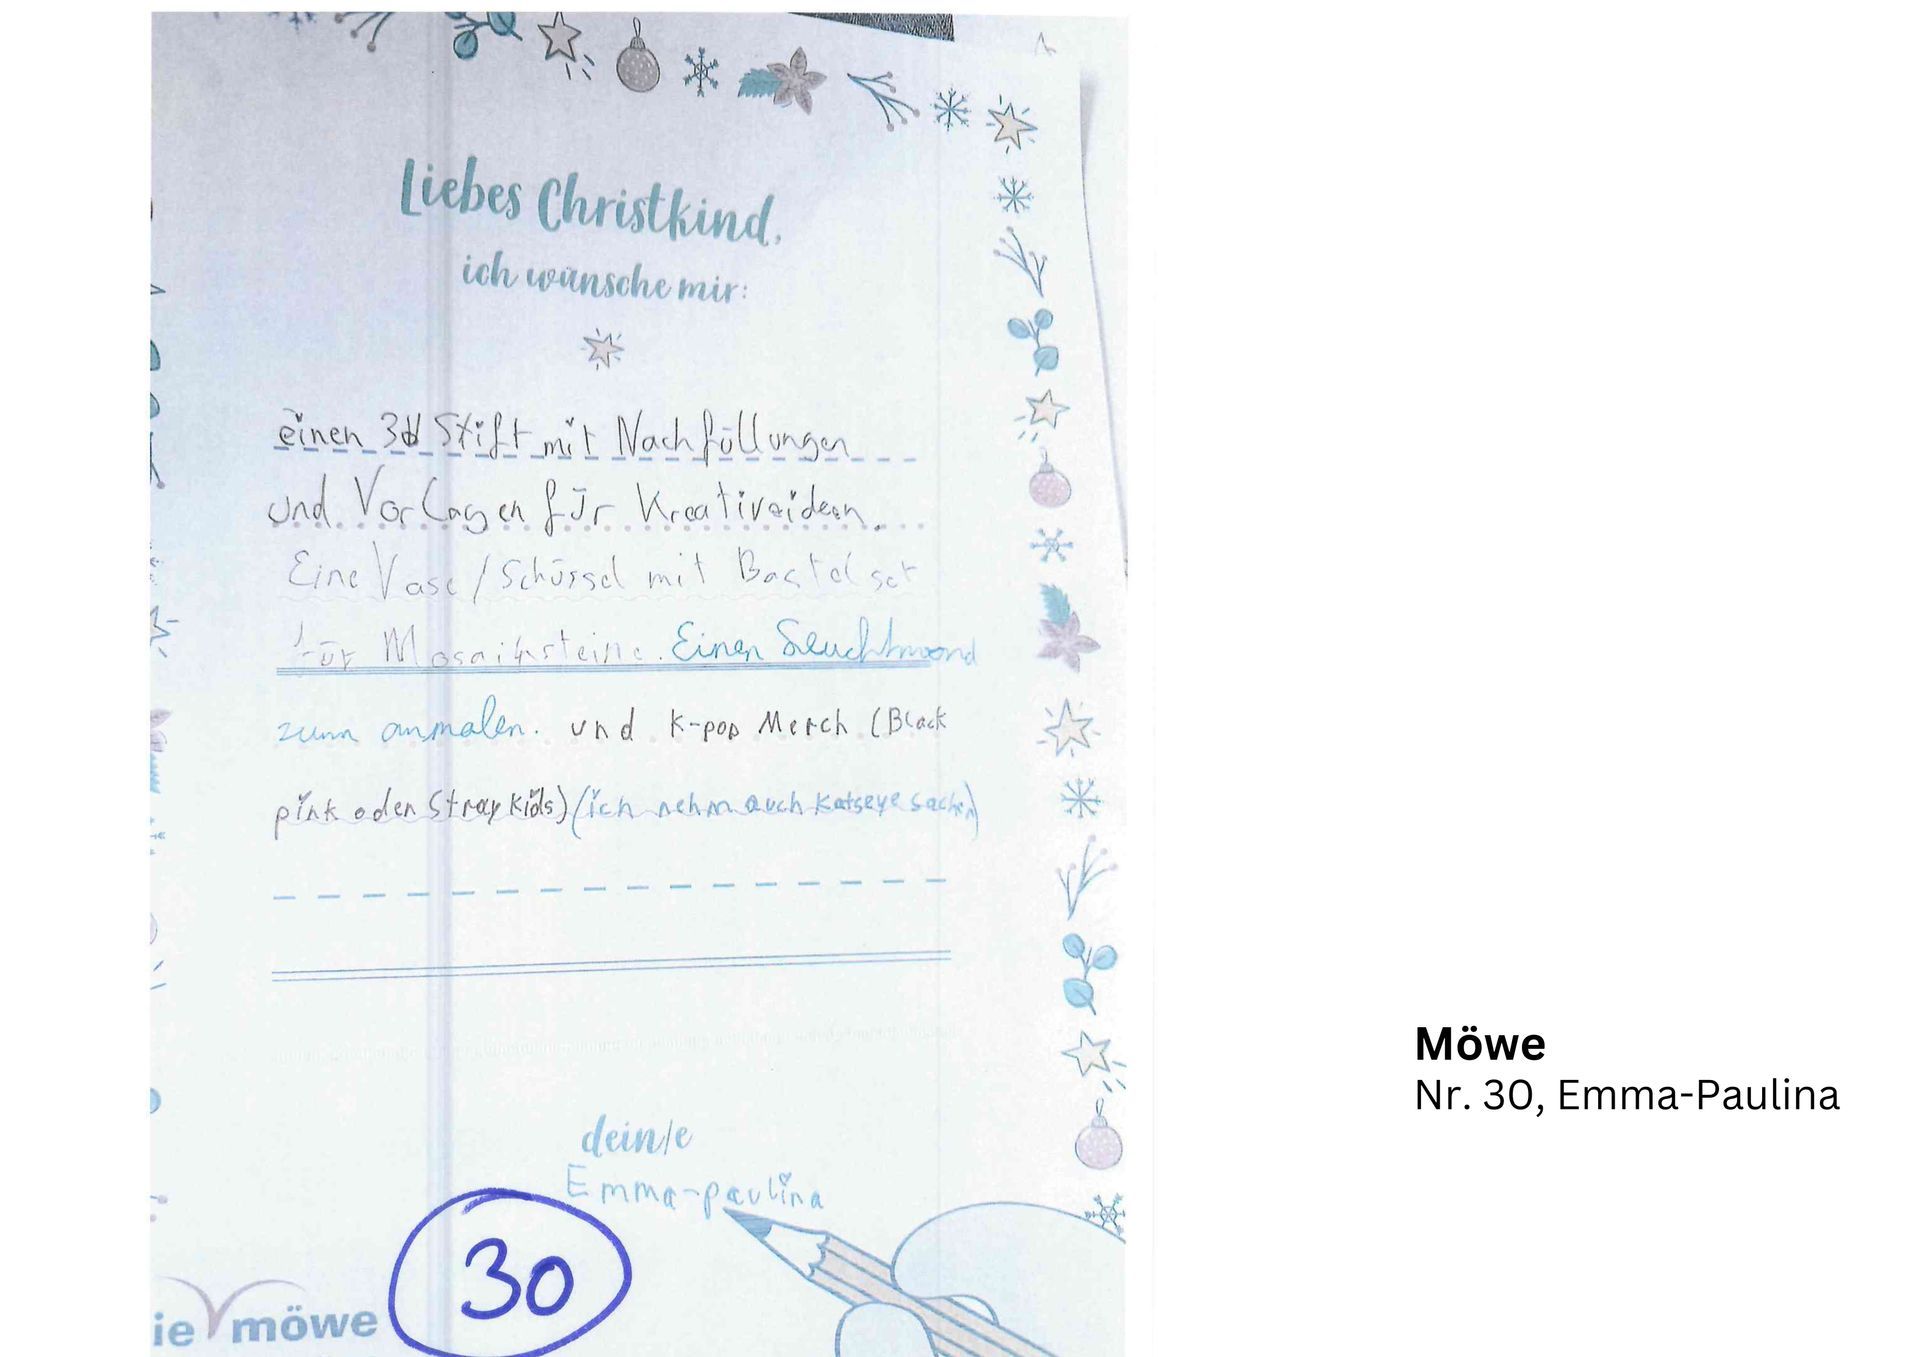 Liebes Christkind,
ich wünsche mir:
einen 3d Stift mit Nachfüllungen
und Vorlagen für Kreativeideen.
Eine Vase / Schüssel mit Bastelset
für Mosaiksteine. Einen Leuchtmond
zum anmalen. und K-pop Merch (Black
pink oden Stray Kids) (ich nehm auch Katseye sachen)
dein/e
Emma-paulina
30
ie möwe
Möwe
Nr. 30, Emma-Paulina